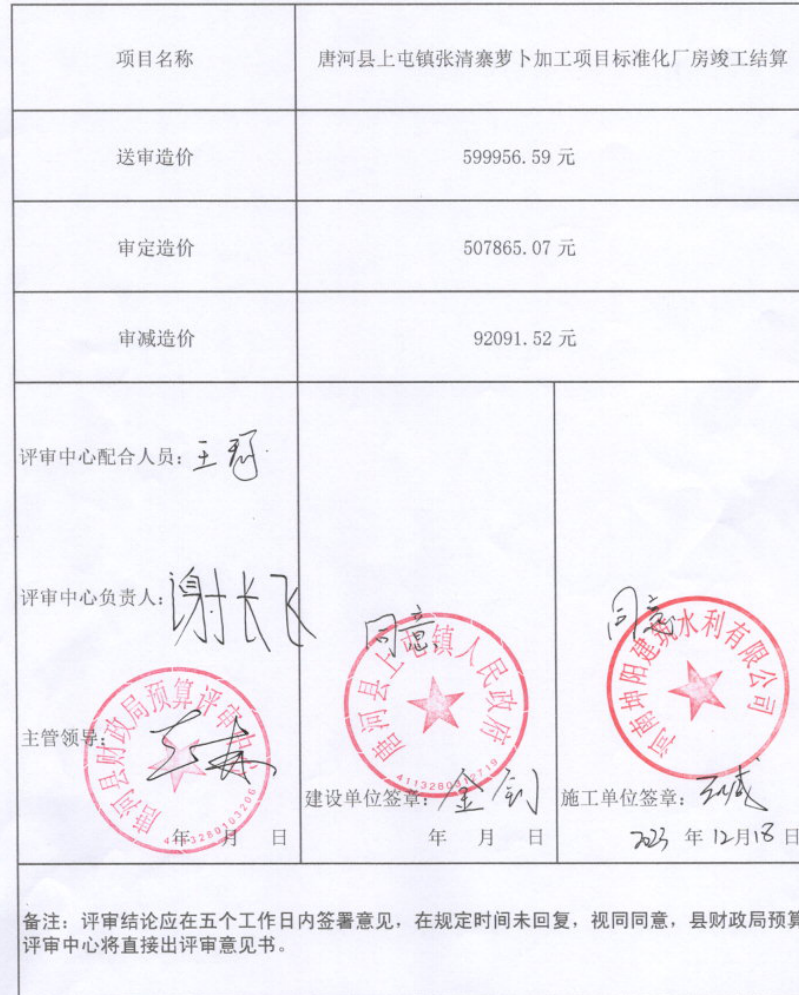 项目名称
唐河县上屯镇张清寨萝卜加工项目标准化厂房竣工结算
送审造价
599956.59 元
审定造价
507865.07 元
审减造价
92091.52 元
评审中心配合人员：王
评审中心负责人：谢长飞
主管领导：
唐河县财政局预算评审中心
4113280103206
年 月 日
同意
唐河县上屯镇人民政府
4113280312719
建设单位签章：金剑
年 月 日
同意
河南坤阳建筑水利有限公司
施工单位签章：
2023 年 12月18日
备注：评审结论应在五个工作日内签署意见，在规定时间未回复，视同同意，县财政局预算
评审中心将直接出评审意见书。